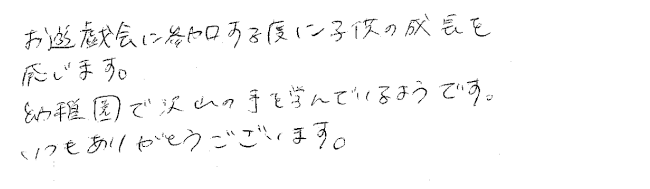 お遊戯会に参加する度に子供の成長を
感じます。
幼稚園で沢山の事を学んでいるようです。
いつもありがとうございます。